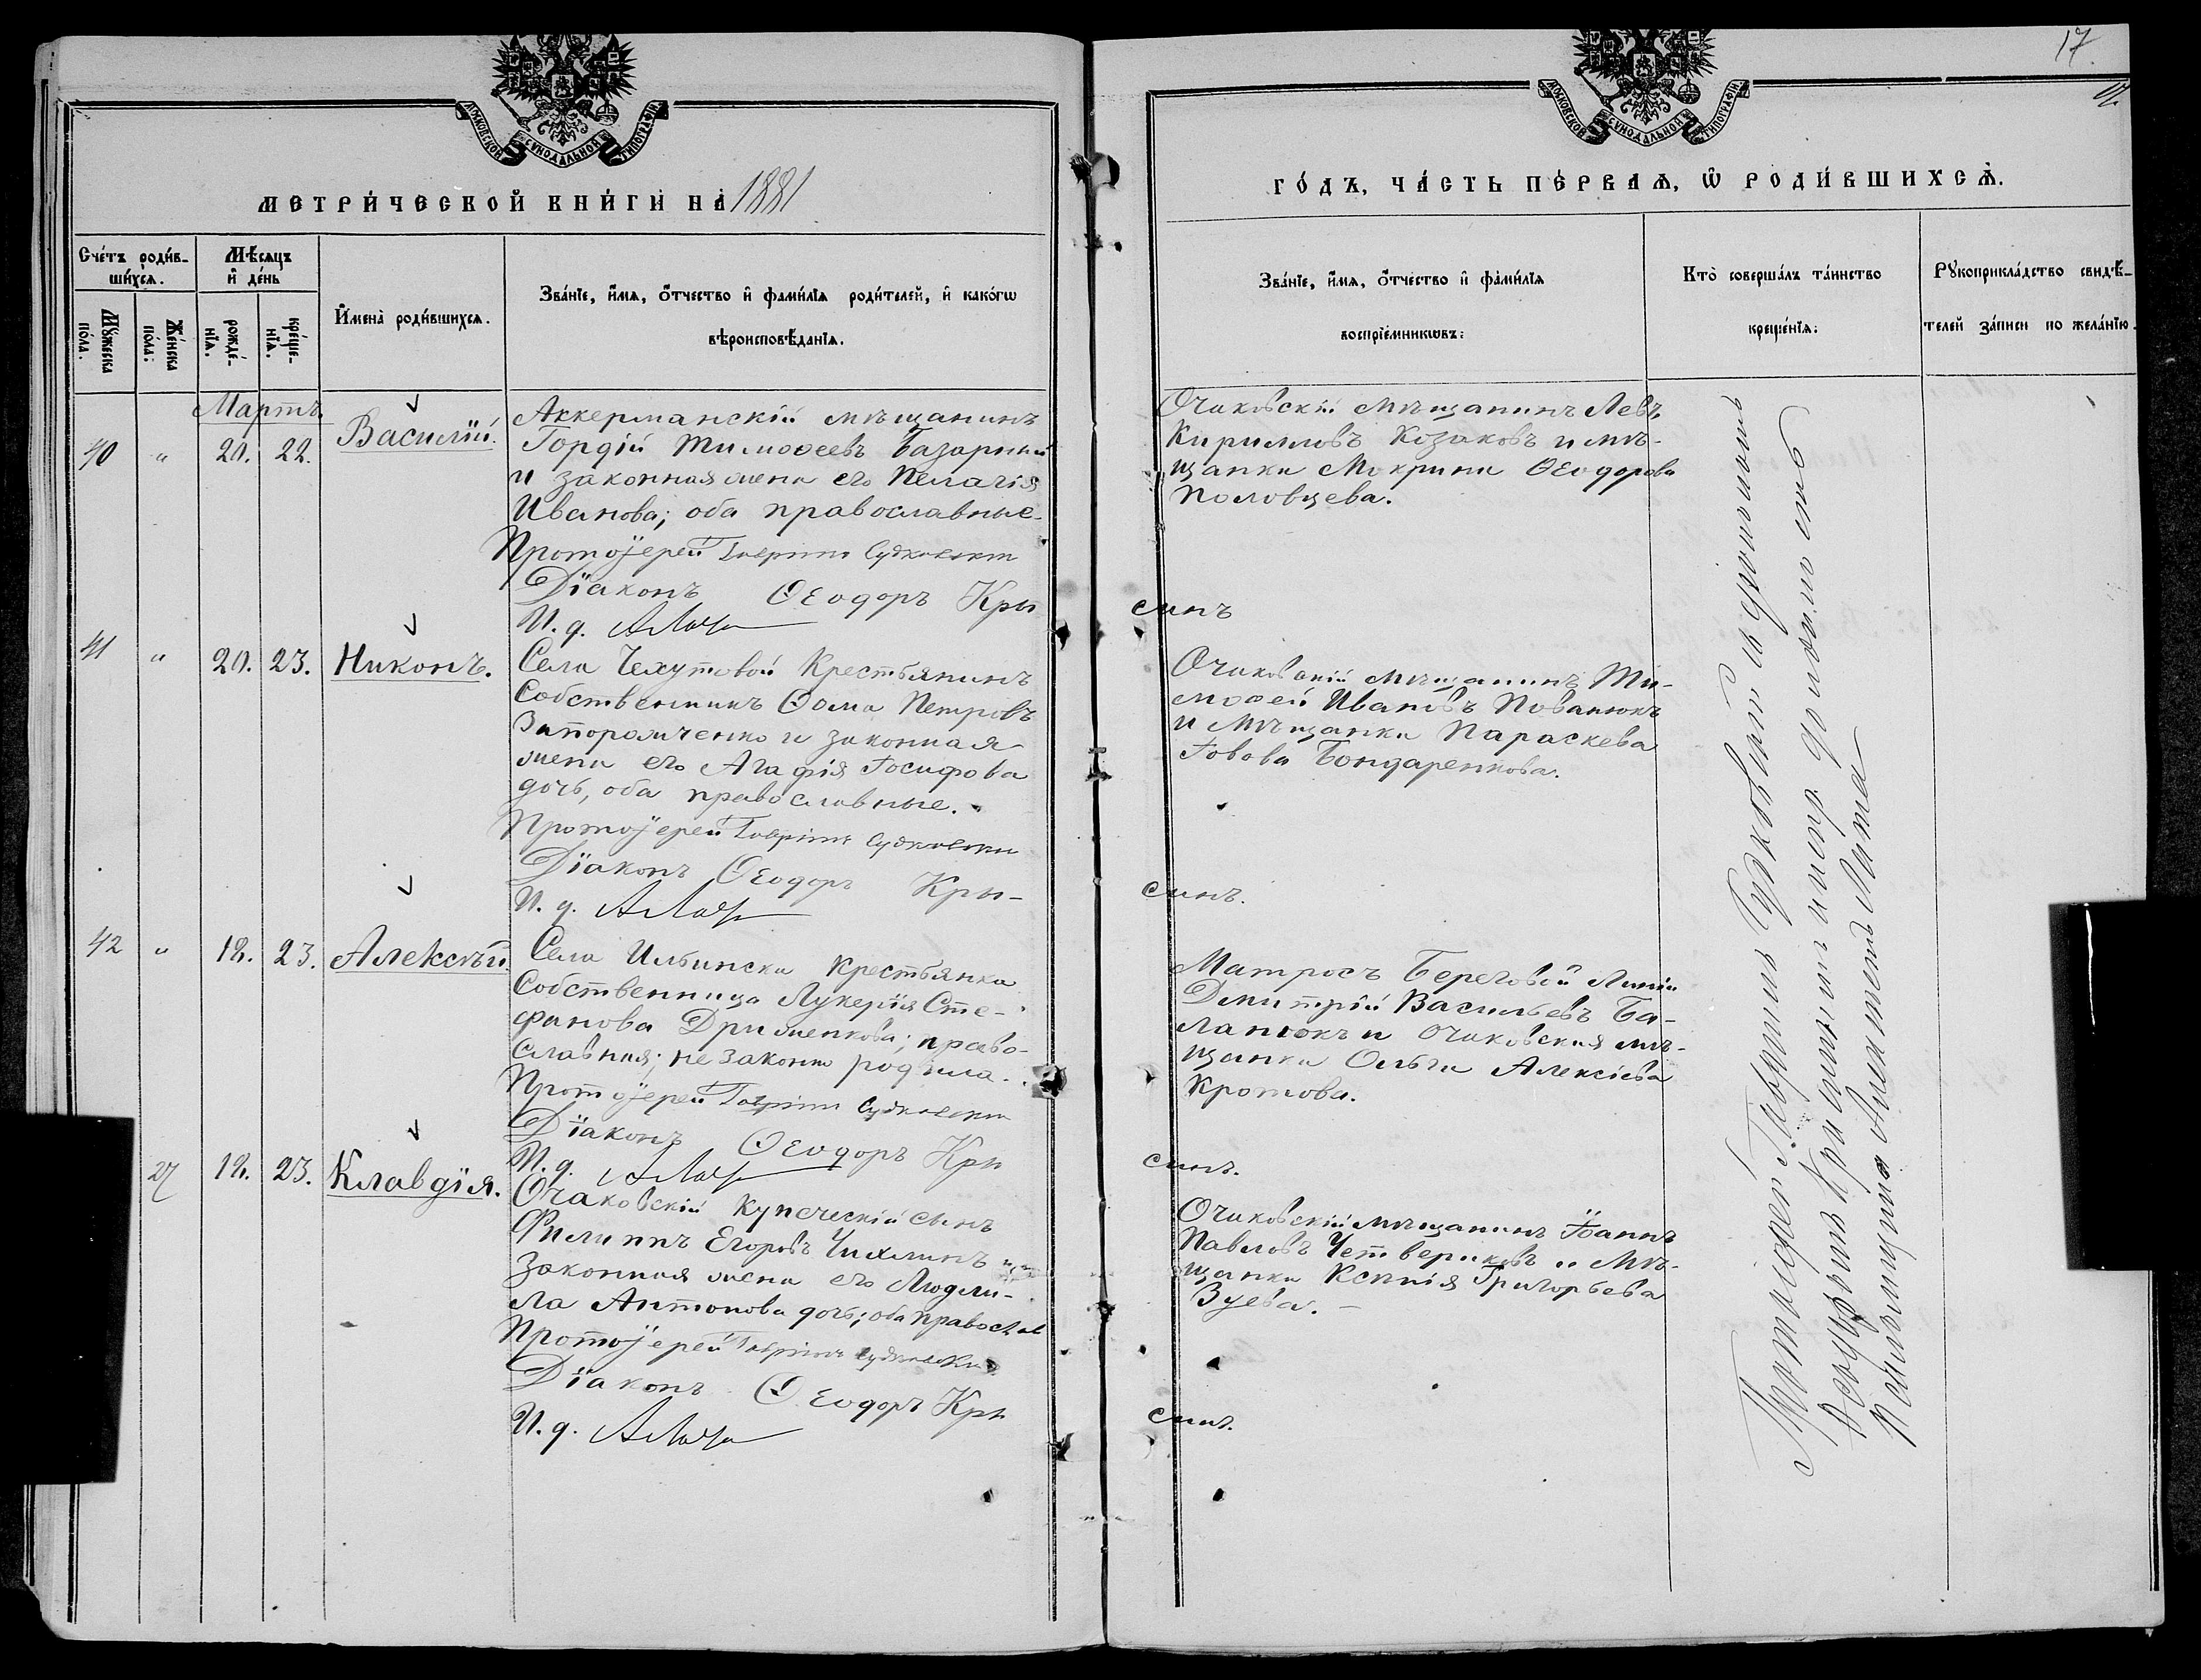 17
17.
МОСКОВСКОЙ СѴНОДАЛЬНОЙ ТИПОГРАФІИ
МОСКОВСКОЙ СѴНОДАЛЬНОЙ ТИПОГРАФІИ
МЕТРИ́ЧЕСКОЙ КНИ́ГИ НА̀ 1881
ГО́ДЪ, ЧА́СТЬ ПЕ́РВАѦ, Ѿ РОДИ́ВШИХСѦ.
Сче́тъ роди́в-
шихсѧ.
Мꙋ́жеска по́ла.
Же́нска по́ла:
Мѣ́сѧцъ
и҆ де́нь
рожде́-
нїѧ.
креще́-
нїѧ.
И҆мена̀ роди́вшихсѧ.
Зва́нїе, и҆́мѧ, ѻ҆́тчество и҆ фами́лїѧ роди́телей, и҆ како́гѡ
вѣроисповѣ́данїѧ.
Зва́нїе, и҆́мѧ, ѻ҆́тчество и҆ фами́лїѧ
воспрїе́мникѡвъ:
Кто̀ соверша́лъ та́инство
креще́нїѧ:
Рꙋкоприкла́дство свидѣ́-
телей за́писи по жела́нїю.
Мартъ
40 " 20. 22. Василій.
Аккерманскій мѣщанинъ
Гордій Тимоѳеевъ Базарный
и законная жена его Пелагія
Иванова; оба православные.
Протоіерей Гавріилъ Судковскій
Діаконъ Ѳеодоръ Кры
И. д.
Очаковскій мѣщанинъ Левъ
Кирилловъ Козаковъ и мѣ-
щанка Макрина Ѳеодорова
Половцева.
синъ
41 " 20. 23. Никонъ.
Села Чехутовой Крестьянинъ
Собственникъ Ѳома Петровъ
Запорожченко и законная
жена его Агафія Іосифова
дочь, оба православные.
Протоіерей Гавріилъ Судковскій
Діаконъ Ѳеодоръ Кры-
И. д.
Очаковскій мѣщанинъ Ти-
моѳей Ивановъ Пованюкъ
и мѣщанка Параскева
Іовова Бондаренкова.
синъ.
42 " 18. 23. Алексѣй.
Села Ильинска Крестьянка
Собственница Лукерія Сте-
фанова Дриженкова; право-
славная; незаконно родила.
Протоіерей Гавріилъ Судковскій
Діаконъ Ѳеодоръ Кры
И. д.
Матросъ Береговой Линіи
Дмитрій Васильевъ Ба-
ланюкъ и Очаковская мѣ-
щанка Ольга Алексіева
Кротова.
синъ.
27 18. 23. Клавдія.
Очаковскій Купеческій сынъ
Филиппъ Егоровъ Чихлинъ и
законная жена его Людми-
ла Антонова дочь; оба православ
Протоіерей Гавріилъ Судковскій
Діаконъ Ѳеодоръ Кры
И. д.
Очаковскій мѣщанинъ Іоаннъ
Павловъ Четвериковъ и мѣ-
щанка Ксенія Григорьева
Зуева.
синъ.
Протоіерей Гавріилъ Судковскій съ діакономъ
Ѳеодоромъ Крысинымъ и испр. должность
Псаломщика